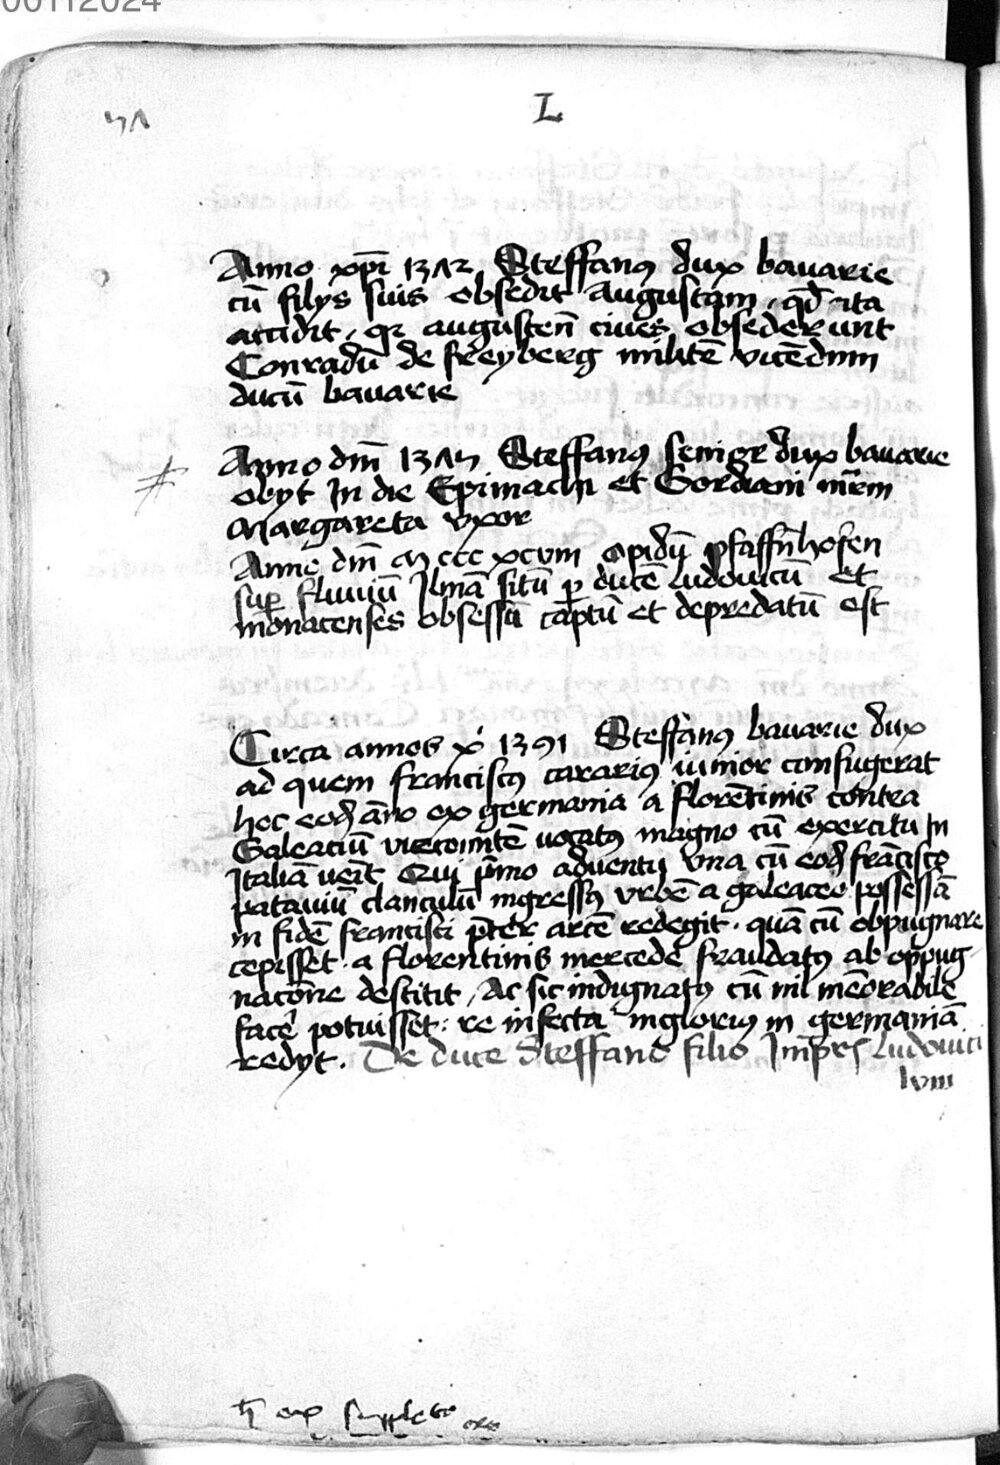 00112024
L
57
Anno xpi 1372 Steffanus dux bavarie
cū filys suis obsedit Augustam, qd ita
accidit, qr augusten̄ cives obsederunt
Conradū de freyberg militē vicedm̄
ducū bavarie
Anno dm̄ 1375 Steffanus senior dux bavarie
obyt In die Epimachi et Gordiani mr̄m
Margareta vxor
Anno dm̄ M ccc xcvııı opidū pfaffn̄hofen
sup fluviū Ilmā sitū p ducē ludovicū et
monacenses obsessū captū et depredatū est
Circa annos x̄ 1391 Steffanus bavarie dux
ad quem franciscus cararius iunior confugerat
hoc eod̄ āno ex germania a florentinis contra
Galeaciū vicecomitē vocatus magno cū exercitu In
Italiā ven̄it Qui p̄mo adventu vna cū eod̄ frācisco
pataviū clanculū ingressus vrbē a galeaceo possessā
in fidē francisci p̄ter arcē redegit. quā cū obpugnare
cepisset. a florentinis mercede fraudatus ab oppug
nacōne destitit, Ac sic indignatus cū nil mēorabile
facē potuisset: re infecta inglorius in germaniā
redyt. De duce Steffano filio Imp̄rs Ludovici
lvııı